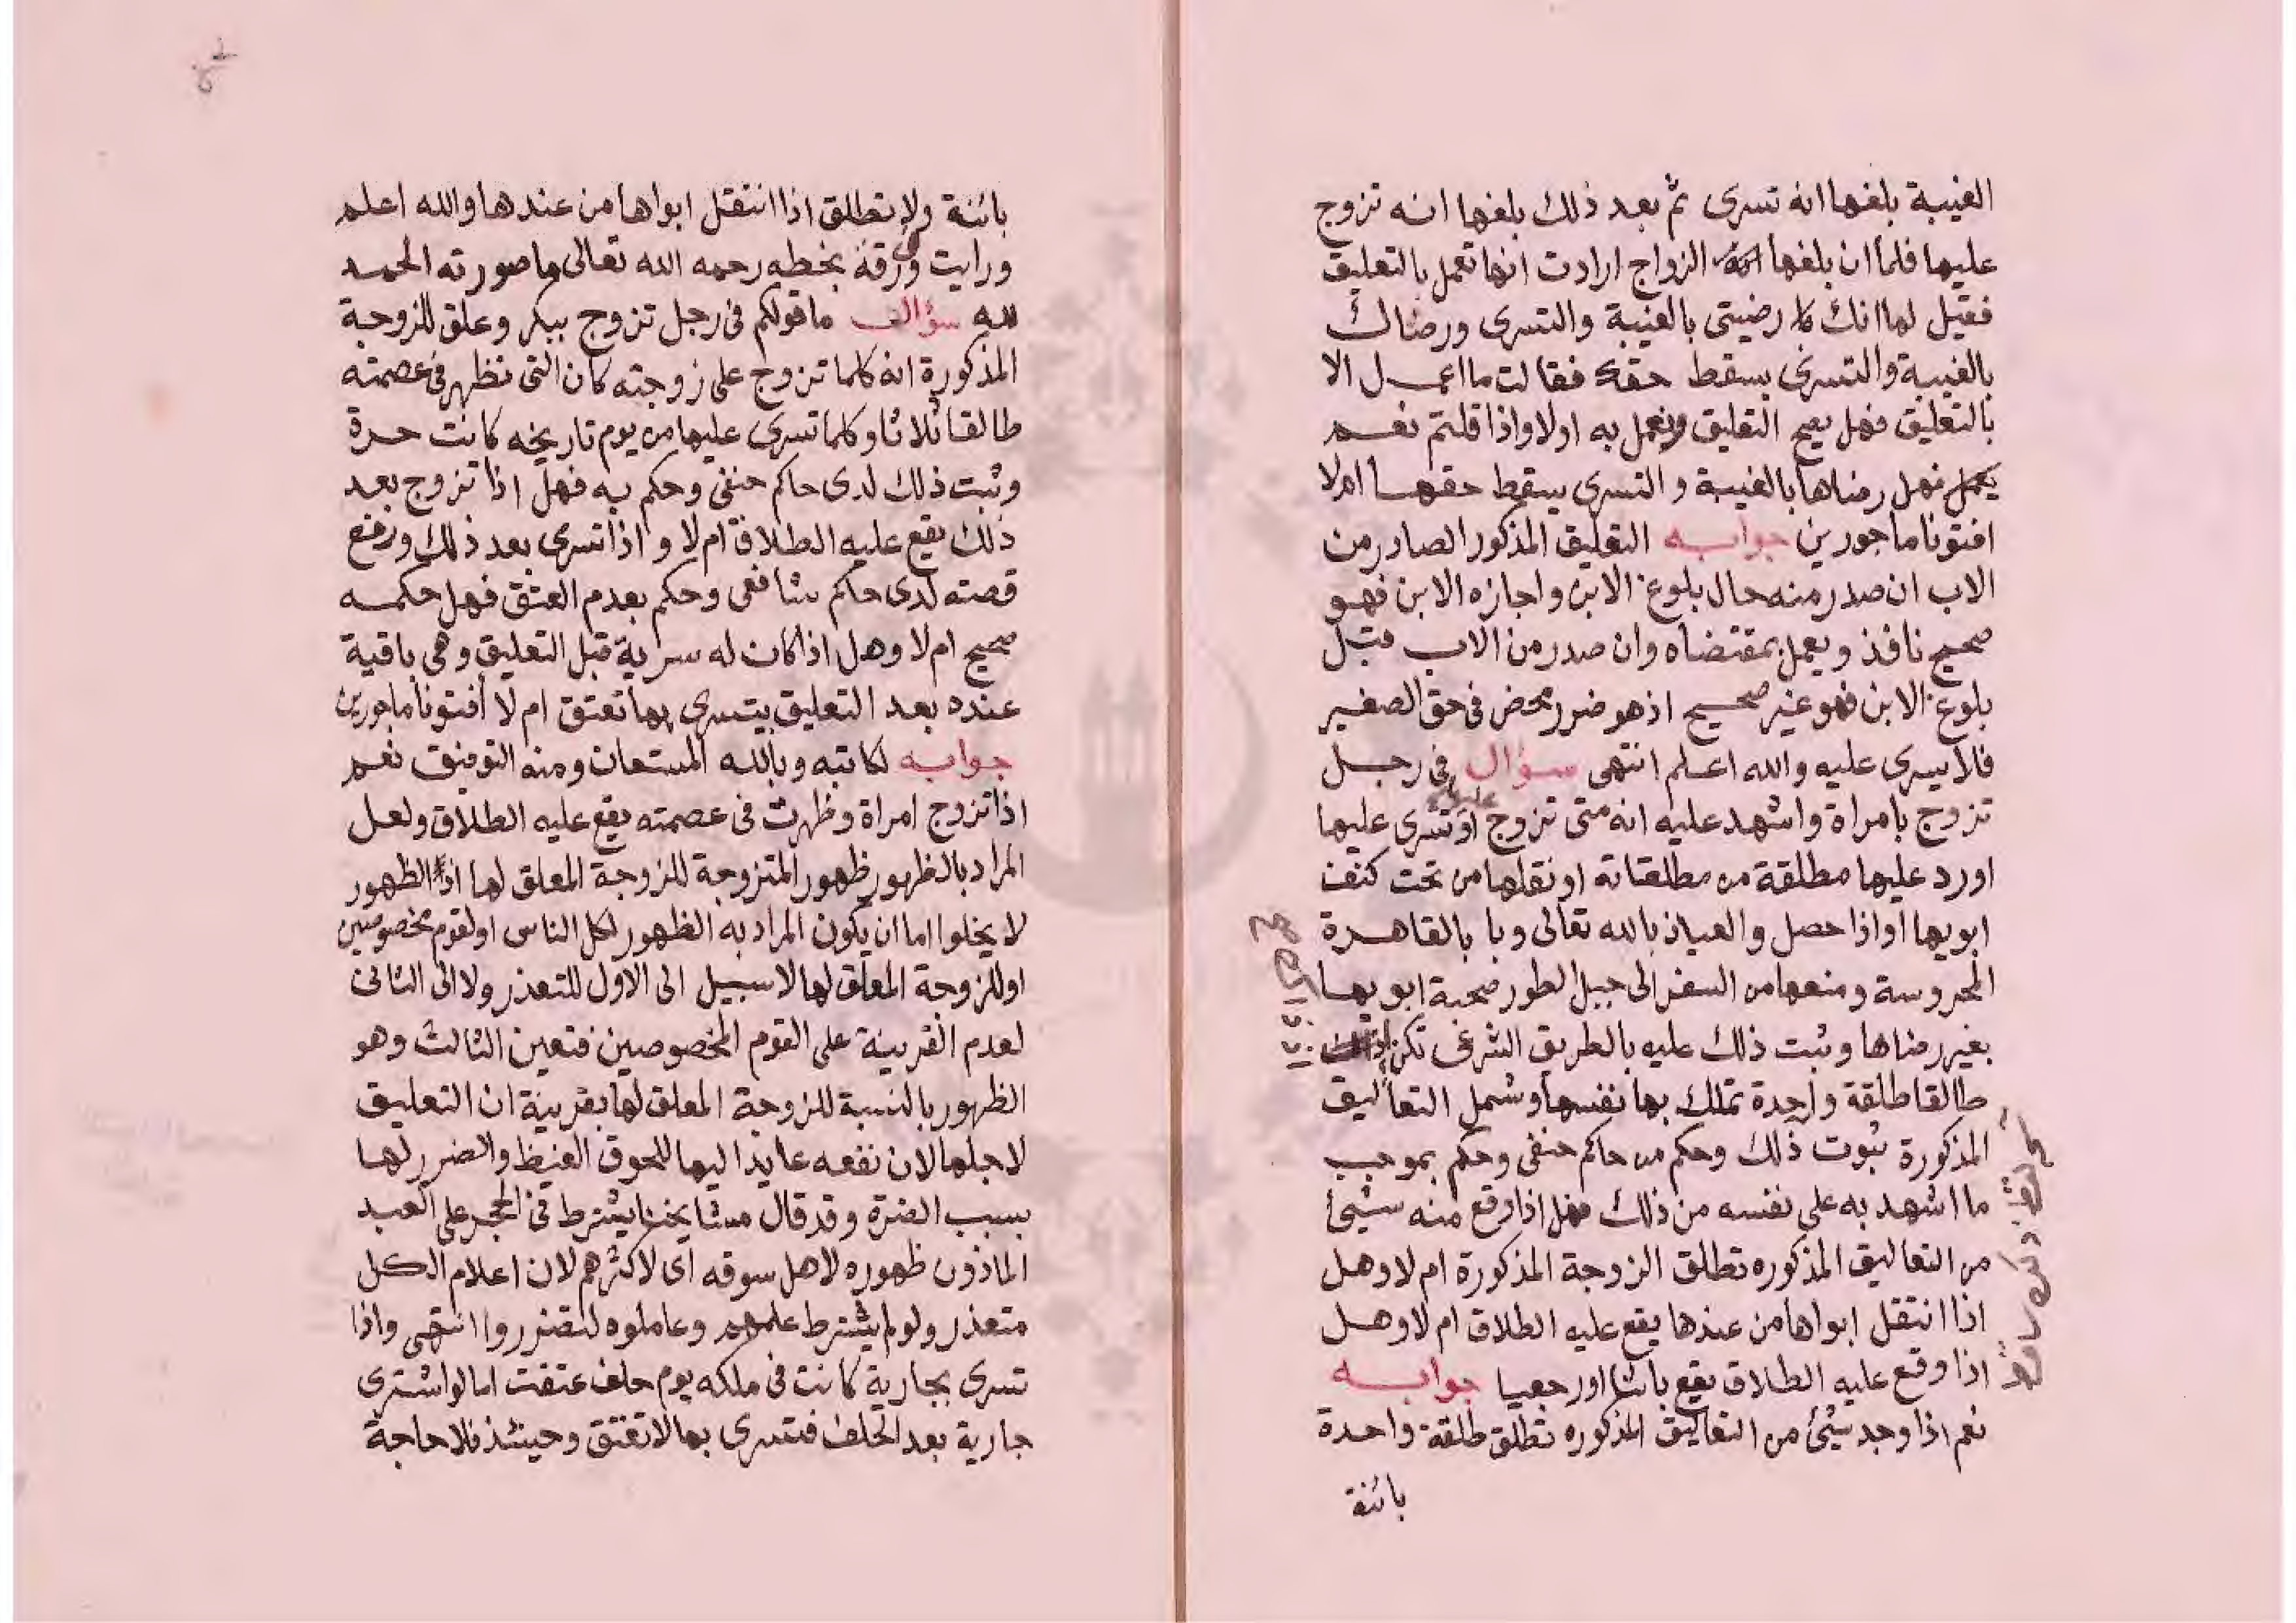 الغيبة بلغها انه تسرى ثم بعد ذلك بلغها انه تزوج
عليها فلما ان بلغها الزواج ارادت انها تعمل بالتعليق
فقيل لها انك رضيتى بالغيبة والتسرى ورضاك
بالغيبة والتسرى يسقط حقك فقالت ما اعمل الا
بالتعليق فهل يصح التعليق ويعمل به اولا واذا قلتم نعم
يعمل فهل رضاها بالغيبة والتسرى يسقط حقها ام لا
افتونا ماجورين جوابه التعليق المذكور الصادر من
الاب ان صدر منه حال بلوغ الابن واجازه الابن فهو
صحيح نافذ ويعمل بمقتضاه وان صدر من الاب قبل
بلوغ الابن فهو غير صحيح اذ هو ضرر محض فى حق الصغير
فلا يسرى عليه والله اعلم انتهى سؤال فى رجل
تزوج بامراة واشهد عليه انه متى تزوج عليها او تسرى عليها
او رد عليها مطلقة من مطلقاته او نقلها من تحت كنف
ابويها او اذا حصل والعياذ بالله تعالى وبا بالقاهرة
المحروسة ومنعها من السفر الى جبل الطور صحبة ابويها
بغير رضاها وثبت ذلك عليه بالطريق الشرعى تكن
طالقا طلقة واحدة تملك بها نفسها وشمل التعاليق
المذكورة ثبوت ذلك وحكم من حاكم حنفى وحكم بموجب
ما اشهد به على نفسه من ذلك فهل اذا وقع منه شيئ
من التعاليق المذكوره تطلق الزوجة المذكورة ام لا وهل
اذا انتقل ابواها من عندها يقع عليه الطلاق ام لا وهل
اذا وقع عليه الطلاق يقع بائنا او رجعيا جوابه
نعم اذا وجد شيئ من التعاليق المذكوره تطلق طلقة واحدة
بائنة
بائنة ولا تطلق اذا انتقل ابواها من عندها والله اعلم
ورايت ورقة بخطه رحمه الله تعالى ما صورته الحمد
لله سؤال ما قولكم فى رجل تزوج ببكر وعلق للزوجة
المذكورة انه كلما تزوج على زوجته كان التى تظهر فى عصمته
طالقا ثلاثا وكلما تسرى عليها من يوم تاريخه كانت حرة
وثبت ذلك لدى حاكم حنفى وحكم به فهل اذا تزوج بعد
ذلك يقع عليه الطلاق ام لا واذا تسرى بعد ذلك ورفع
قصته لدى حاكم شافعى وحكم بعدم العتق فهل حكمه
صحيح ام لا وهل اذا كان له سرية قبل التعليق وهى باقية
عنده بعد التعليق يتسرى بها تعتق ام لا افتونا ماجورين
جوابه لكاتبه وبالله المستعان ومنه التوفيق نعم
اذا تزوج امراة وظهرت فى عصمته يقع عليه الطلاق ولعل
المراد بالظهور ظهور المتزوجة للزوجة المعلق لها اذ الظهور
لا يخلوا اما ان يكون المراد به الظهور لكل الناس او لقوم مخصوصين
او للزوجة المعلق لها لا سبيل الى الاول للتعذر ولا الى الثانى
لعدم القرينة على القوم المخصوصين فتعين الثالث وهو
الظهور بالنسبة للزوجة المعلق لها بقرينة ان التعليق
لاجلها لان نفعه عايدا اليها للحوق الغيظ والضرر لها
بسبب الضرة وقد قال مشايخنا يشترط فى الحجر على العبد
الماذون ظهوره لاهل سوقه اى لاكثرهم لان اعلام الكل
متعذر ولو لم يشترط علمهم وعاملوه لتضرروا انتهى واذا
تسرى بجارية كانت فى ملكه يوم حلف عتقت اما لو اشترى
جارية بعد الحلف فتسرى بها لا تعتق وحينئذ فلا حاجة